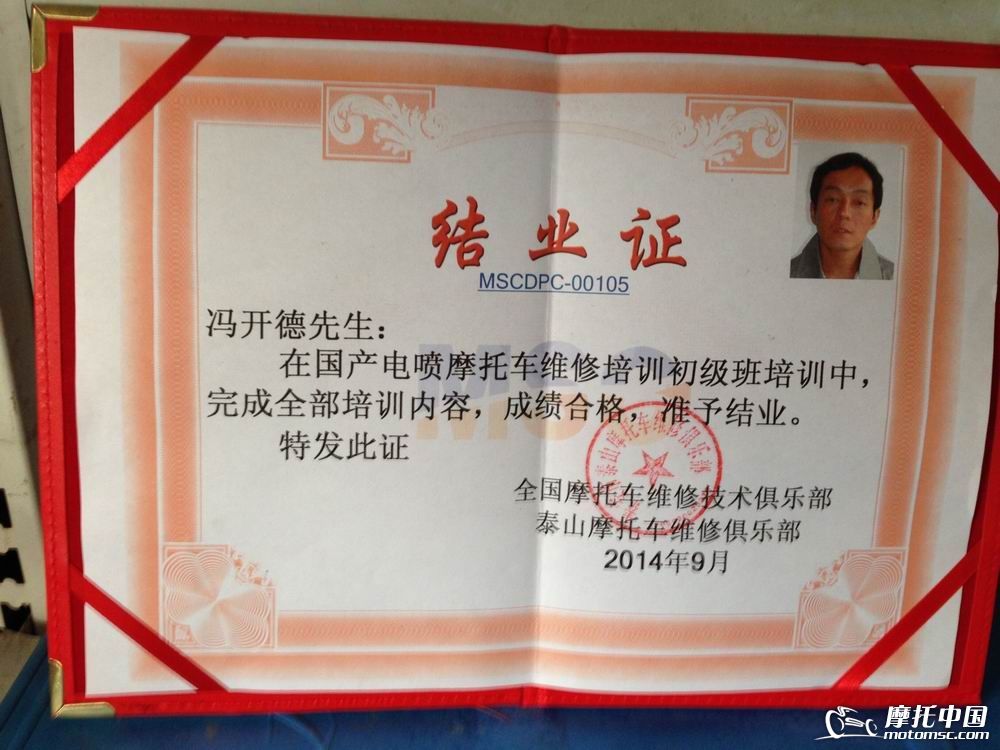 结业证
MSCDPC-00105
冯开德先生：
在国产电喷摩托车维修培训初级班培训中，
完成全部培训内容，成绩合格，准予结业。
特发此证
MSC
泰山摩托车维修俱乐部
全国摩托车维修技术俱乐部
泰山摩托车维修俱乐部
2014年9月
摩托中国
motomsc.com